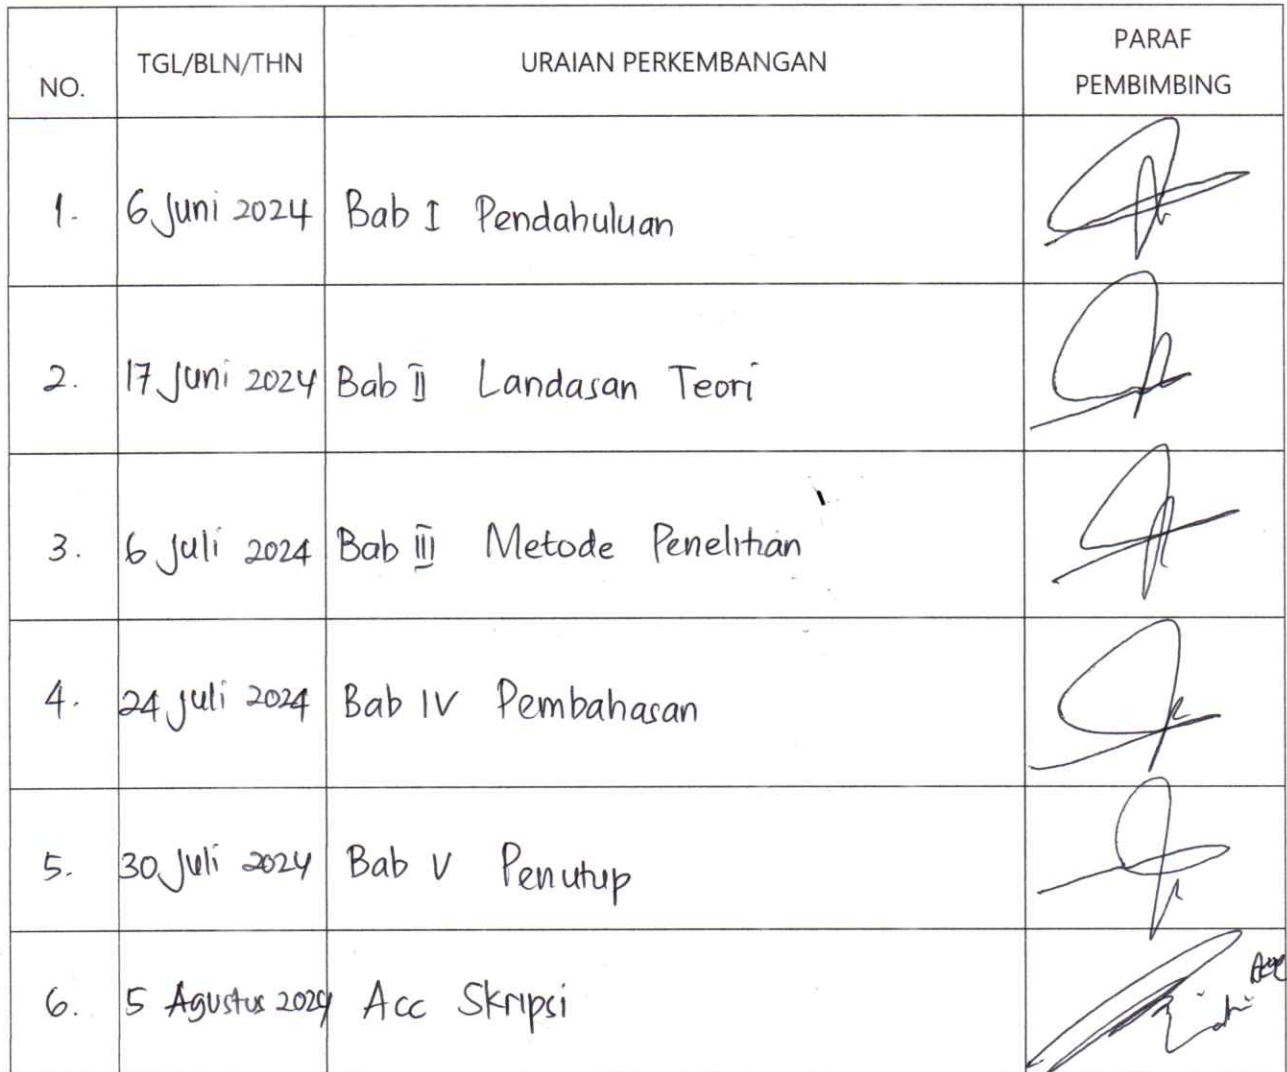 NO. TGL/BLN/THN URAIAN PERKEMBANGAN PARAF
PEMBIMBING
1. 6 Juni 2024 Bab I Pendahuluan
2. 17 Juni 2024 Bab II Landasan Teori
3. 6 Juli 2024 Bab III Metode Penelitian
4. 24 Juli 2024 Bab IV Pembahasan
5. 30 Juli 2024 Bab V Penutup
6. 5 Agustus 2024 Acc Skripsi